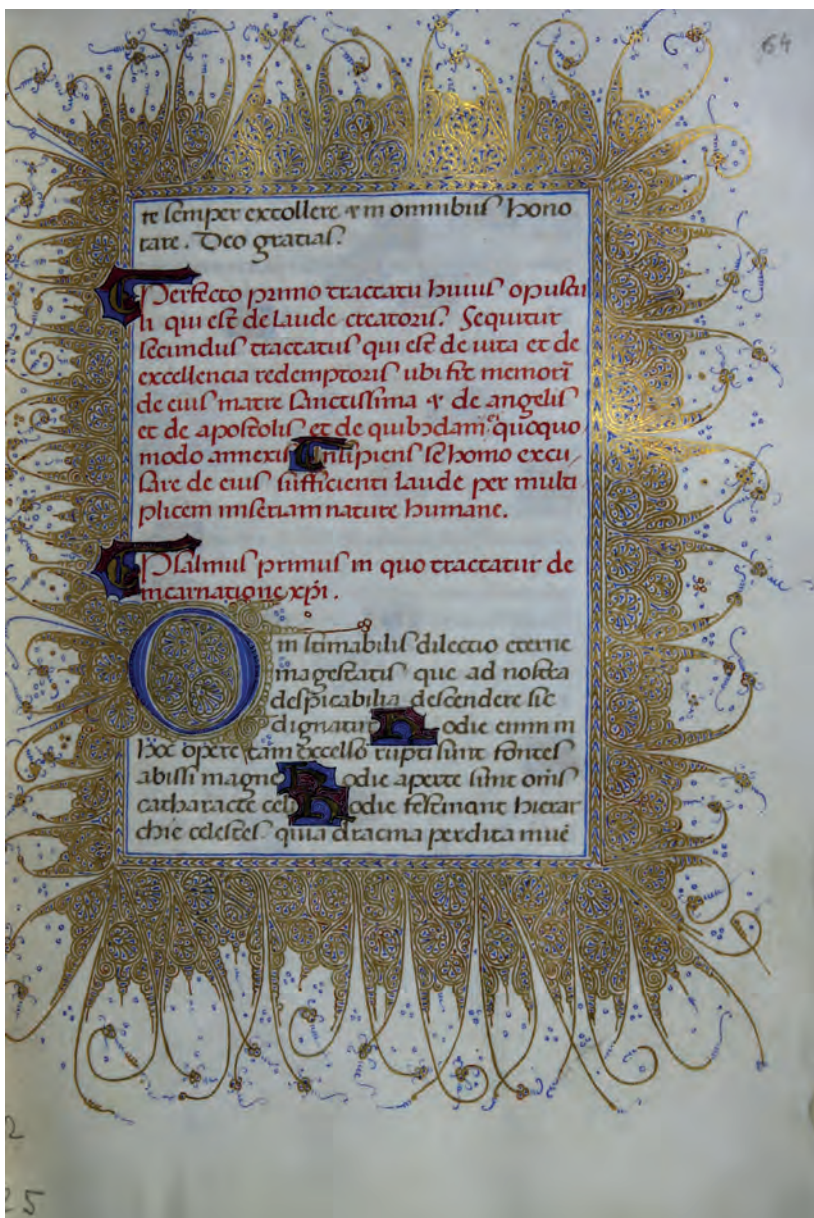 64
re semper extollere & in omnibus hono
rare. Deo gratias.
Perfecto primo tractatu huius opuscu
li qui est de laude creatoris. Sequitur
secundus tractatus qui est de uita et de
excellencia redemptoris ubi fit memori̅
de eius matre sanctissima & de angelis
et de apostolis et de quibusdam ei quoquo
modo annexis Incipiens se homo excu
sare de eius sufficienti laude per multi
plicem miseriam nature humane.
Psalmus primus in quo tractatur de
incarnatione xp̅i.
O inestimabilis dilectio eterne
magestatis que ad nostra
despicabilia descendere sic
dignatur Hodie enim in
hoc opere tam excelso rupti sunt fontes
abissi magne Hodie aperte sunt om̅s
catharacte celi Hodie festinant hierar
chie celestes quia dracma perdita inue̅
2
25